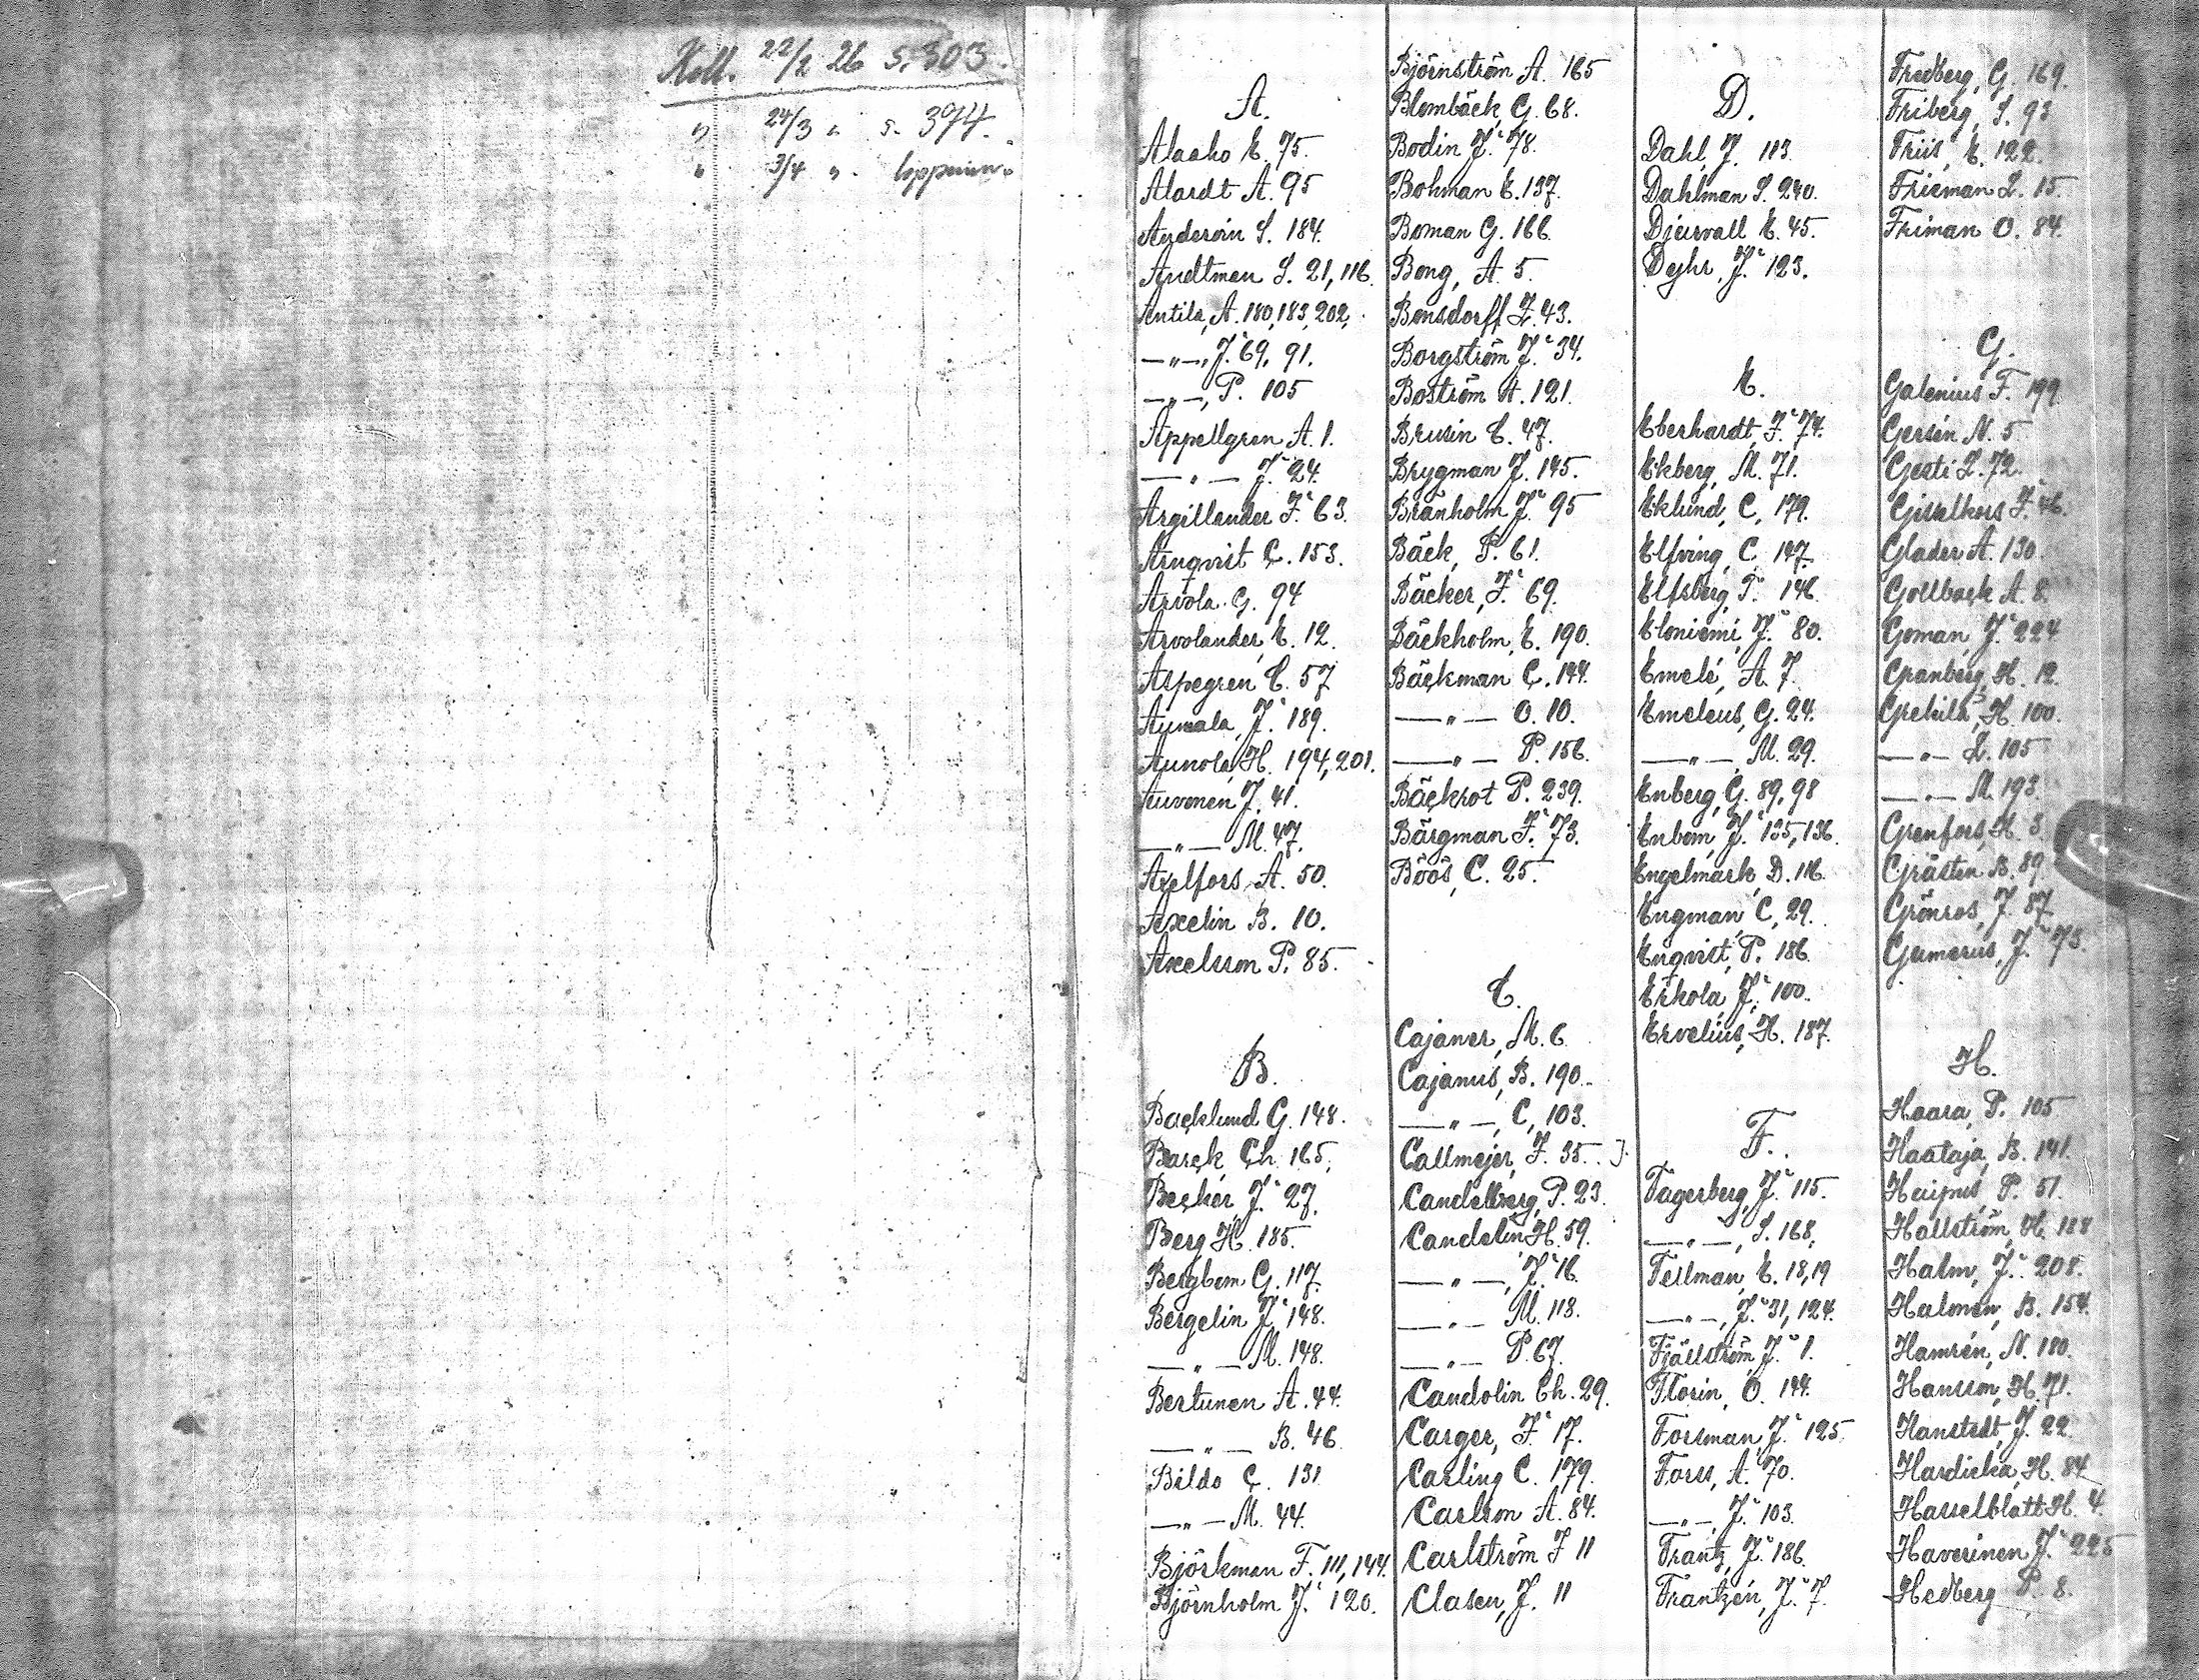 Koll. 22/2 26 s. 303.
" 24/3 " s. 374.
" 3/4 " loppuun.
A.
Alaaho E. 75.
Alardt A. 95
Andersin S. 184.
Andtman S. 21, 116.
Antila, A. 180, 183, 202,
—"—, J. 69, 91.
—"—, P. 105
Appellgren A. 1.
—"— J. 24.
Argillander J. 63.
Arnqvist C. 153.
Arvola G. 94
Arvolander, E. 12.
Aspegren C. 57
Aumala, J. 189.
Aunola, H. 194, 201.
Auvonen J. 41.
—"— M. 47.
Axelfors, A. 50.
Axelin B. 10.
Axelsson P. 85.
B.
Backlund G. 148.
Barck Ch. 165,
Becker J. 27.
Berg H. 185.
Bergbom G. 117.
Bergelin J. 148.
—"— M. 148.
Bertunen A. 44.
—"— B. 46
Bildo C. 131
—"— M. 44.
Björkman F. 111, 144.
Björnholm J. 120.
Björnström A. 165
Blombäck, G. 68.
Bodin J. 78.
Bohman E. 137.
Boman G. 166.
Bong, A 5.
Bonsdorff J. 43.
Borgström J. 34.
Boström A. 121.
Brusin C. 47.
Brygman J. 145.
Brånholm J. 95
Bäck, P. 61.
Bäcker, J. 69.
Bäckholm, E. 190.
Bäckman C. 144.
—"— O. 10.
—"— P. 156.
Bäckrot P. 239.
Bärgman J. 73.
Böös, C. 25.
C.
Cajaner, M. 6
Cajanus, B. 190.
—"—, C, 103.
Callmejer, J. 35.
Candelberg, P. 23.
Candelin H. 59.
—"—, J. 16.
—"— M. 113.
—"— P. 67.
Candolin Ch. 29.
Carger, J. 17.
Carling C. 179.
Carlson A. 84.
Carlström J 11
Clasen, J. 11
D.
Dahl, J. 113.
Dahlman S. 240.
Djeirvall E. 45.
Dyhr, J. 123.
E.
Eberhardt, J. 74.
Ekberg, M. 71.
Eklund, C, 179.
Elfving, C, 147.
Elfsberg, P. 146
Eloniemi, J. 80.
Emelé, A. 7.
Emeleus, G. 24.
—"—, M. 29.
Enberg, G. 89, 98
Enbom, J. 135, 136.
Engelmark, D. 116.
Engman, C, 29.
Enqvist, P. 186.
Erkola, J. 100.
Ervelius, H. 187.
F.
Fagerberg, J. 115.
—"—, S. 168,
Fellman, E. 18, 19
—"—, J. 31, 124.
Fjällström J. 1.
Florin, O. 144.
Forsman, J. 125.
Forss, A. 70.
—"—, J. 103.
Frantz, J. 186.
Frantzén, J. 7.
Fredberg, G. 169.
Friberg, S. 93
Friis, E. 122.
Frisman L. 15.
Friman O. 84.
G.
Galenius F. 199
Gersén N. 5
Gesti L. 72.
Giselkors J. 46.
Glader A. 130
Gollback A. 8.
Goman, J. 224
Granberg, H. 12.
Grekilä, H. 100.
—"— L. 105
—"— M. 193.
Grenfors, H. 3.
Grästen B. 89.
Grönros, J. 87
Gumerus, J. 73.
H.
Haara, P. 105
Haataja, B. 141.
Haipus, P. 51.
Hallström, H. 188
Halm, J. 208.
Halonen, B. 154.
Hamrén, N. 180.
Hansson, H. 71.
Hanstedt, J. 22
Hardicka, H. 84
Hasselblatt H. 4.
Haverinen J. 225
Hedberg P. 8.